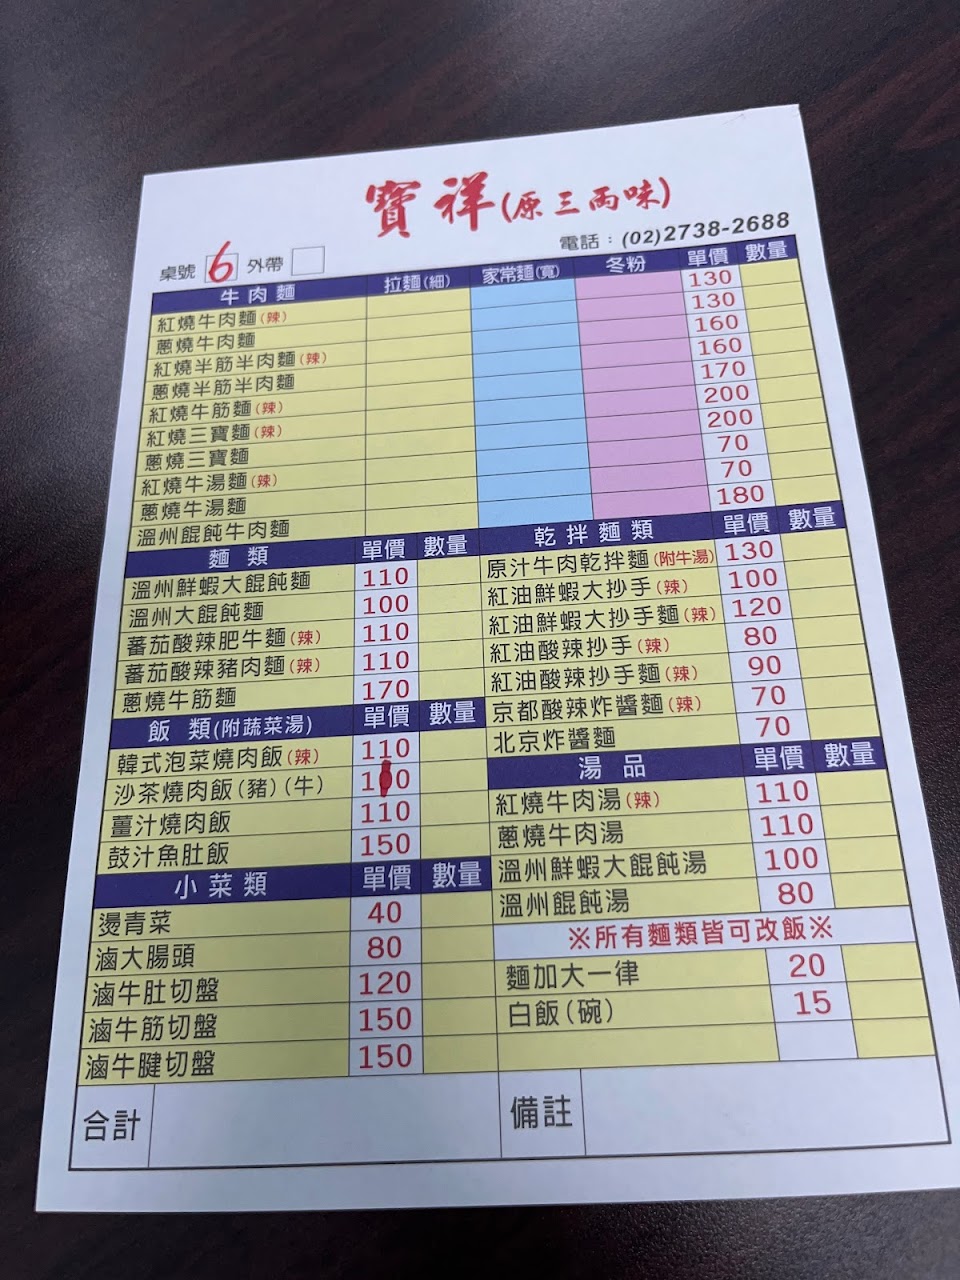 寶祥(原三両味)
電話：(02)2738-2688
桌號 6 外帶
牛肉麵 拉麵(細) 家常麵(寬) 冬粉 單價 數量
紅燒牛肉麵(辣) 130
蔥燒牛肉麵 130
紅燒半筋半肉麵(辣) 160
蔥燒半筋半肉麵 160
紅燒牛筋麵(辣) 170
紅燒三寶麵(辣) 200
蔥燒三寶麵 200
紅燒牛湯麵(辣) 70
蔥燒牛湯麵 70
溫州餛飩牛肉麵 180
麵類 單價 數量
溫州鮮蝦大餛飩麵 110
溫州大餛飩麵 100
蕃茄酸辣肥牛麵(辣) 110
蕃茄酸辣豬肉麵(辣) 110
蔥燒牛筋麵 170
飯類(附蔬菜湯) 單價 數量
韓式泡菜燒肉飯(辣) 110
沙茶燒肉飯(豬)(牛)
薑汁燒肉飯 110
鼓汁魚肚飯 150
小菜類 單價 數量
燙青菜 40
滷大腸頭 80
滷牛肚切盤 120
滷牛筋切盤 150
滷牛腱切盤 150
乾拌麵類 單價 數量
原汁牛肉乾拌麵(附牛湯) 130
紅油鮮蝦大抄手(辣) 100
紅油鮮蝦大抄手麵(辣) 120
紅油酸辣抄手(辣) 80
紅油酸辣抄手麵(辣) 90
京都酸辣炸醬麵(辣) 70
北京炸醬麵 70
湯品 單價 數量
紅燒牛肉湯(辣) 110
蔥燒牛肉湯 110
溫州鮮蝦大餛飩湯 100
溫州餛飩湯 80
※所有麵類皆可改飯※
麵加大一律 20
白飯(碗) 15
合計
備註